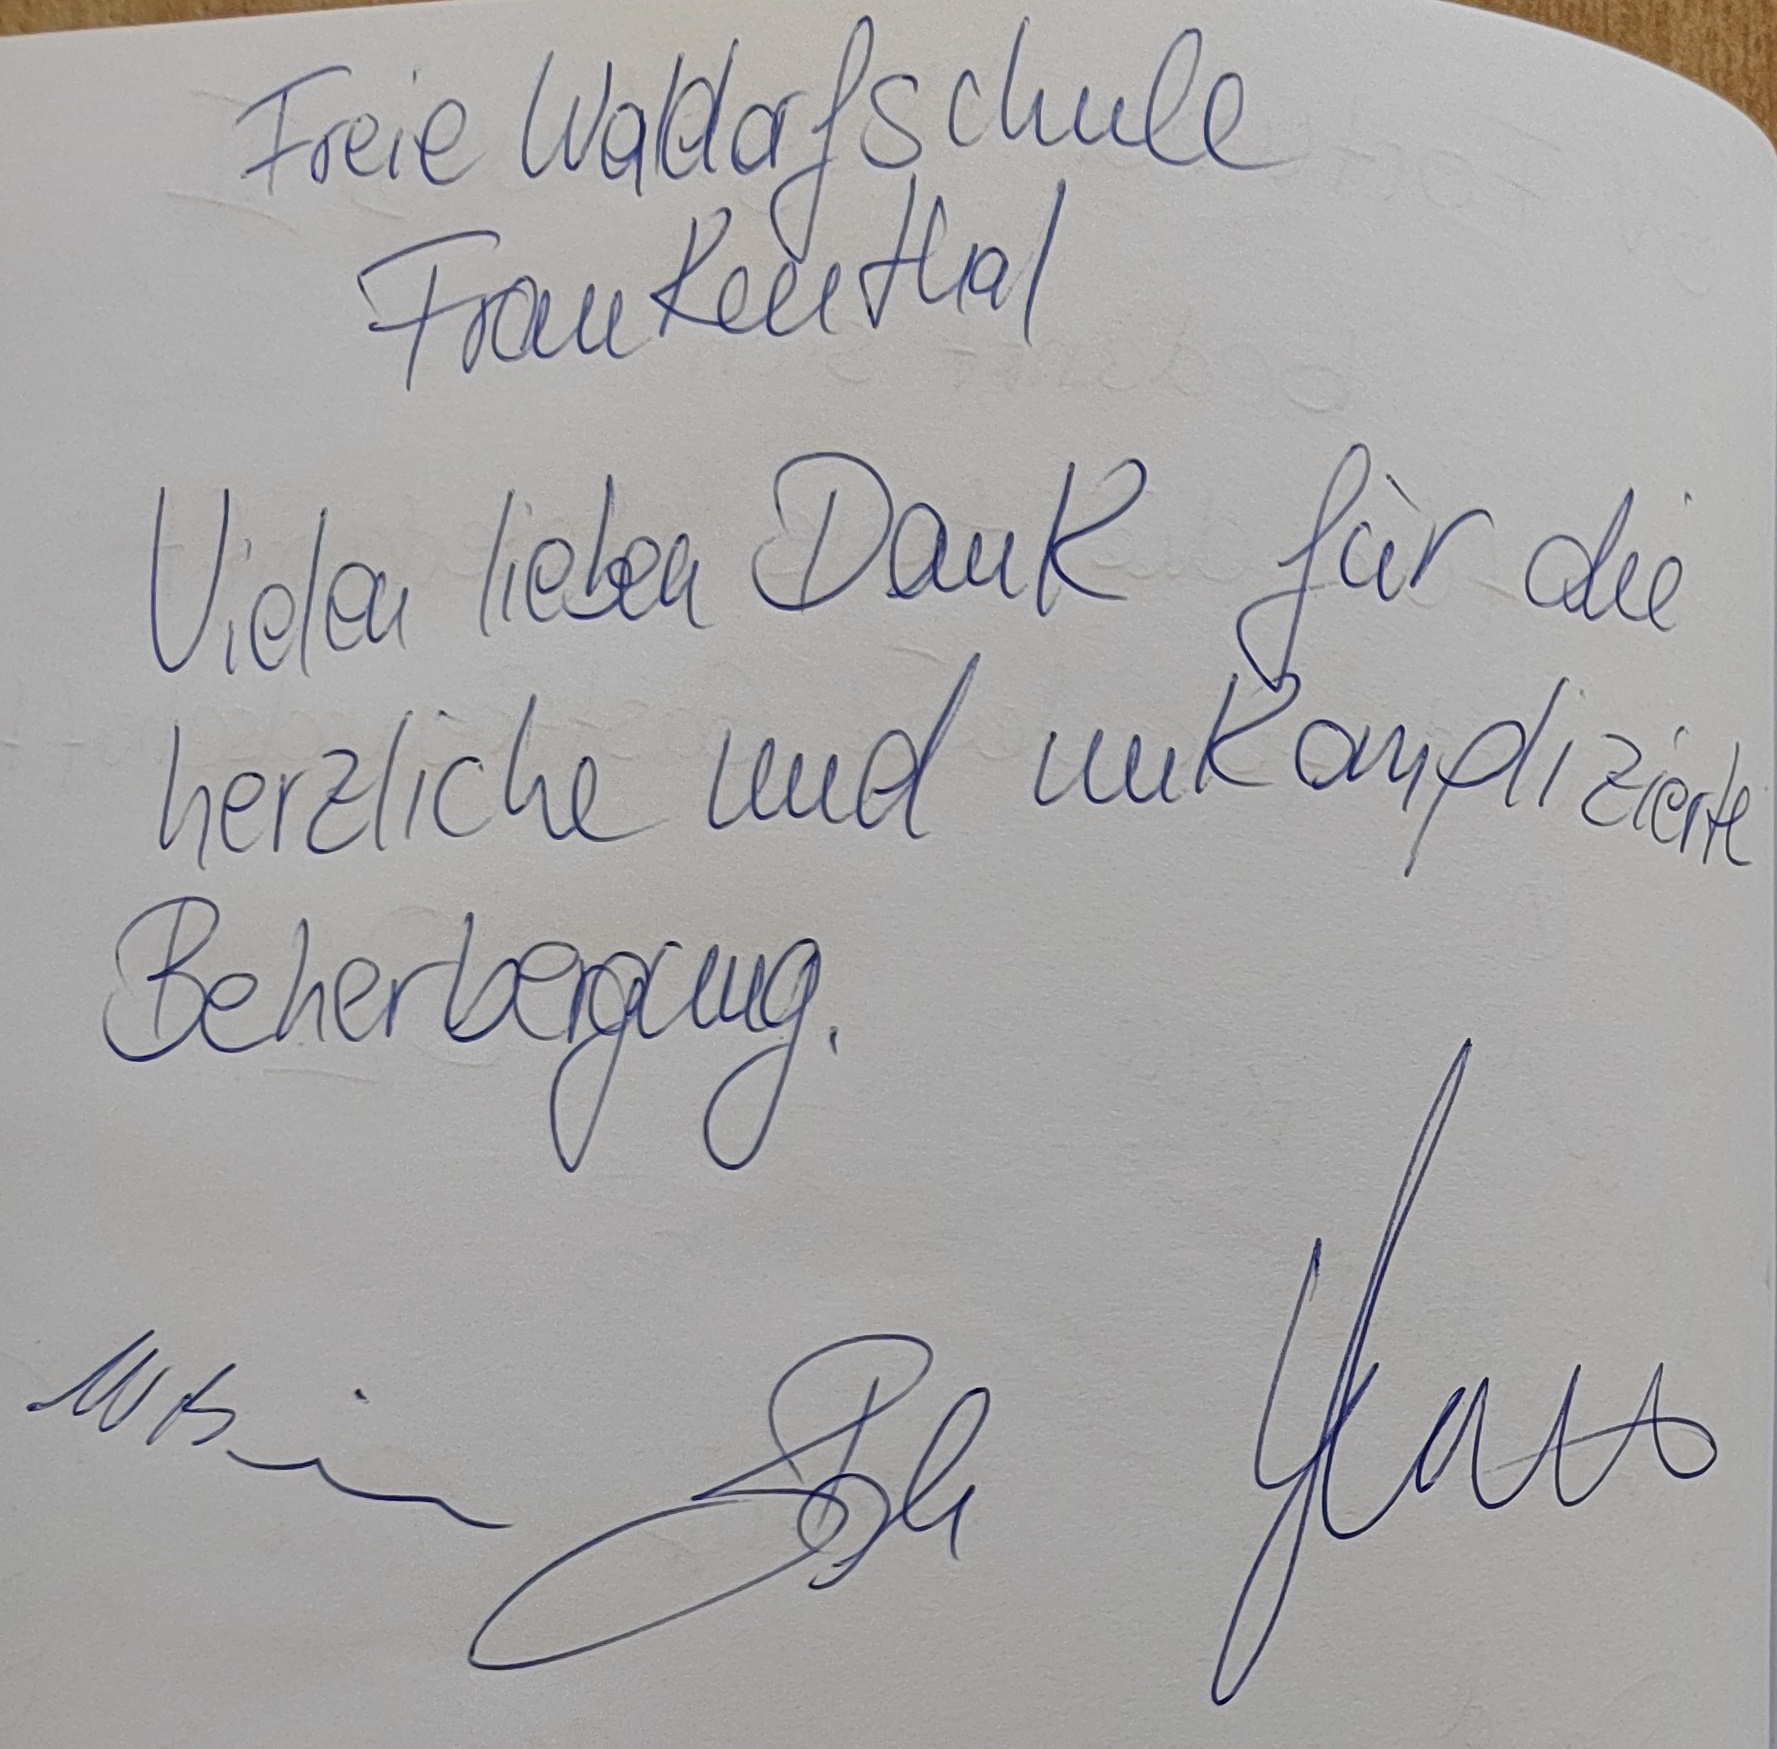 Freie Waldorfschule
Frankenthal
Vielen lieben Dank für die
herzliche und unkomplizierte
Beherbergung.